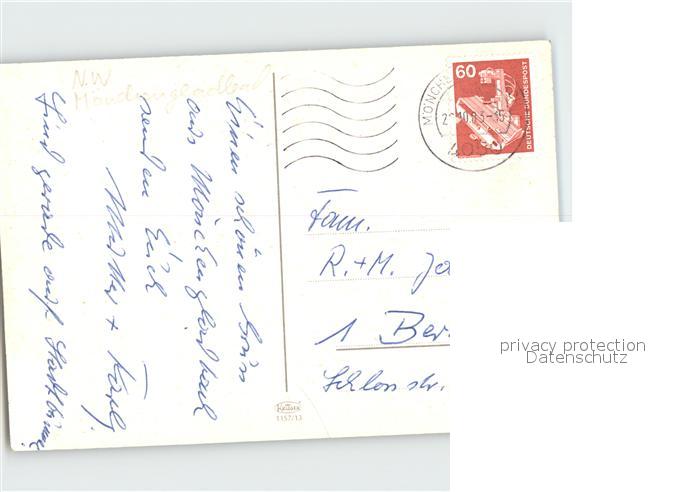 N.W
Mönchengladbach
Einen schönen Gruß
aus Mönchengladbach
senden Euch
Mutter +
Sind gerade auf Stadtbummel
60
DEUTSCHE BUNDESPOST
MÖNCHEN
Fam.
R.+M. Ja
1 Ber
Schlosstr.
1157/13
privacy protection
Datenschutz